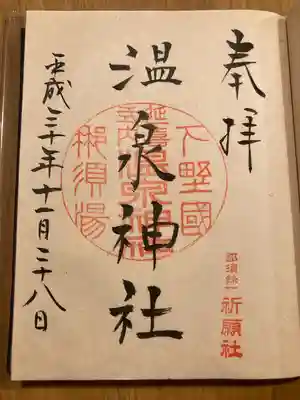 奉拝
那須余一
祈願社
下野國
延喜式内
温泉神社
那須湯
温泉神社
平成三十年十一月二十八日